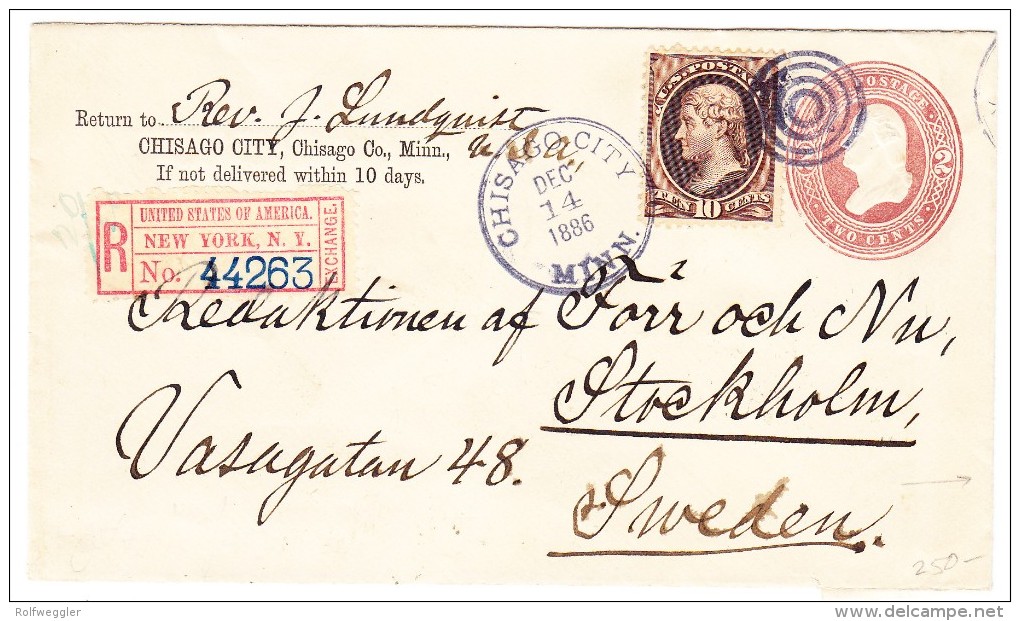 Return to Rev. J. Lundquist
CHISAGO CITY, Chisago Co., Minn., U.S.A.
If not delivered within 10 days.
R
UNITED STATES OF AMERICA.
NEW YORK, N. Y.
No. 44263
EXCHANGE.
CHISAGO CITY
DEC
14
1886
MINN.
U.S. POSTAGE
TEN 10 CENTS
POSTAGE
2
TWO CENTS
Redaktionen af Förr och Nu,
Stockholm,
Vasagatan 48.
Sweden.
250-
Rolfweggler
www.delcampe.net